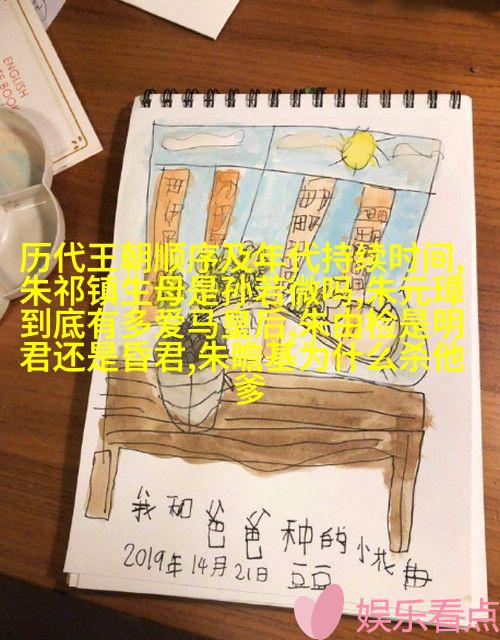 ENGLISH
BOOK
历代王朝顺序及年代持续时间,
朱祁镇生母是孙若微吗,朱元璋
到底有多爱马皇后,朱由检是明
君还是昏君,朱瞻基为什么杀他
爹
我和爸爸种的小
2019年14月21日 豆豆
娱乐看点